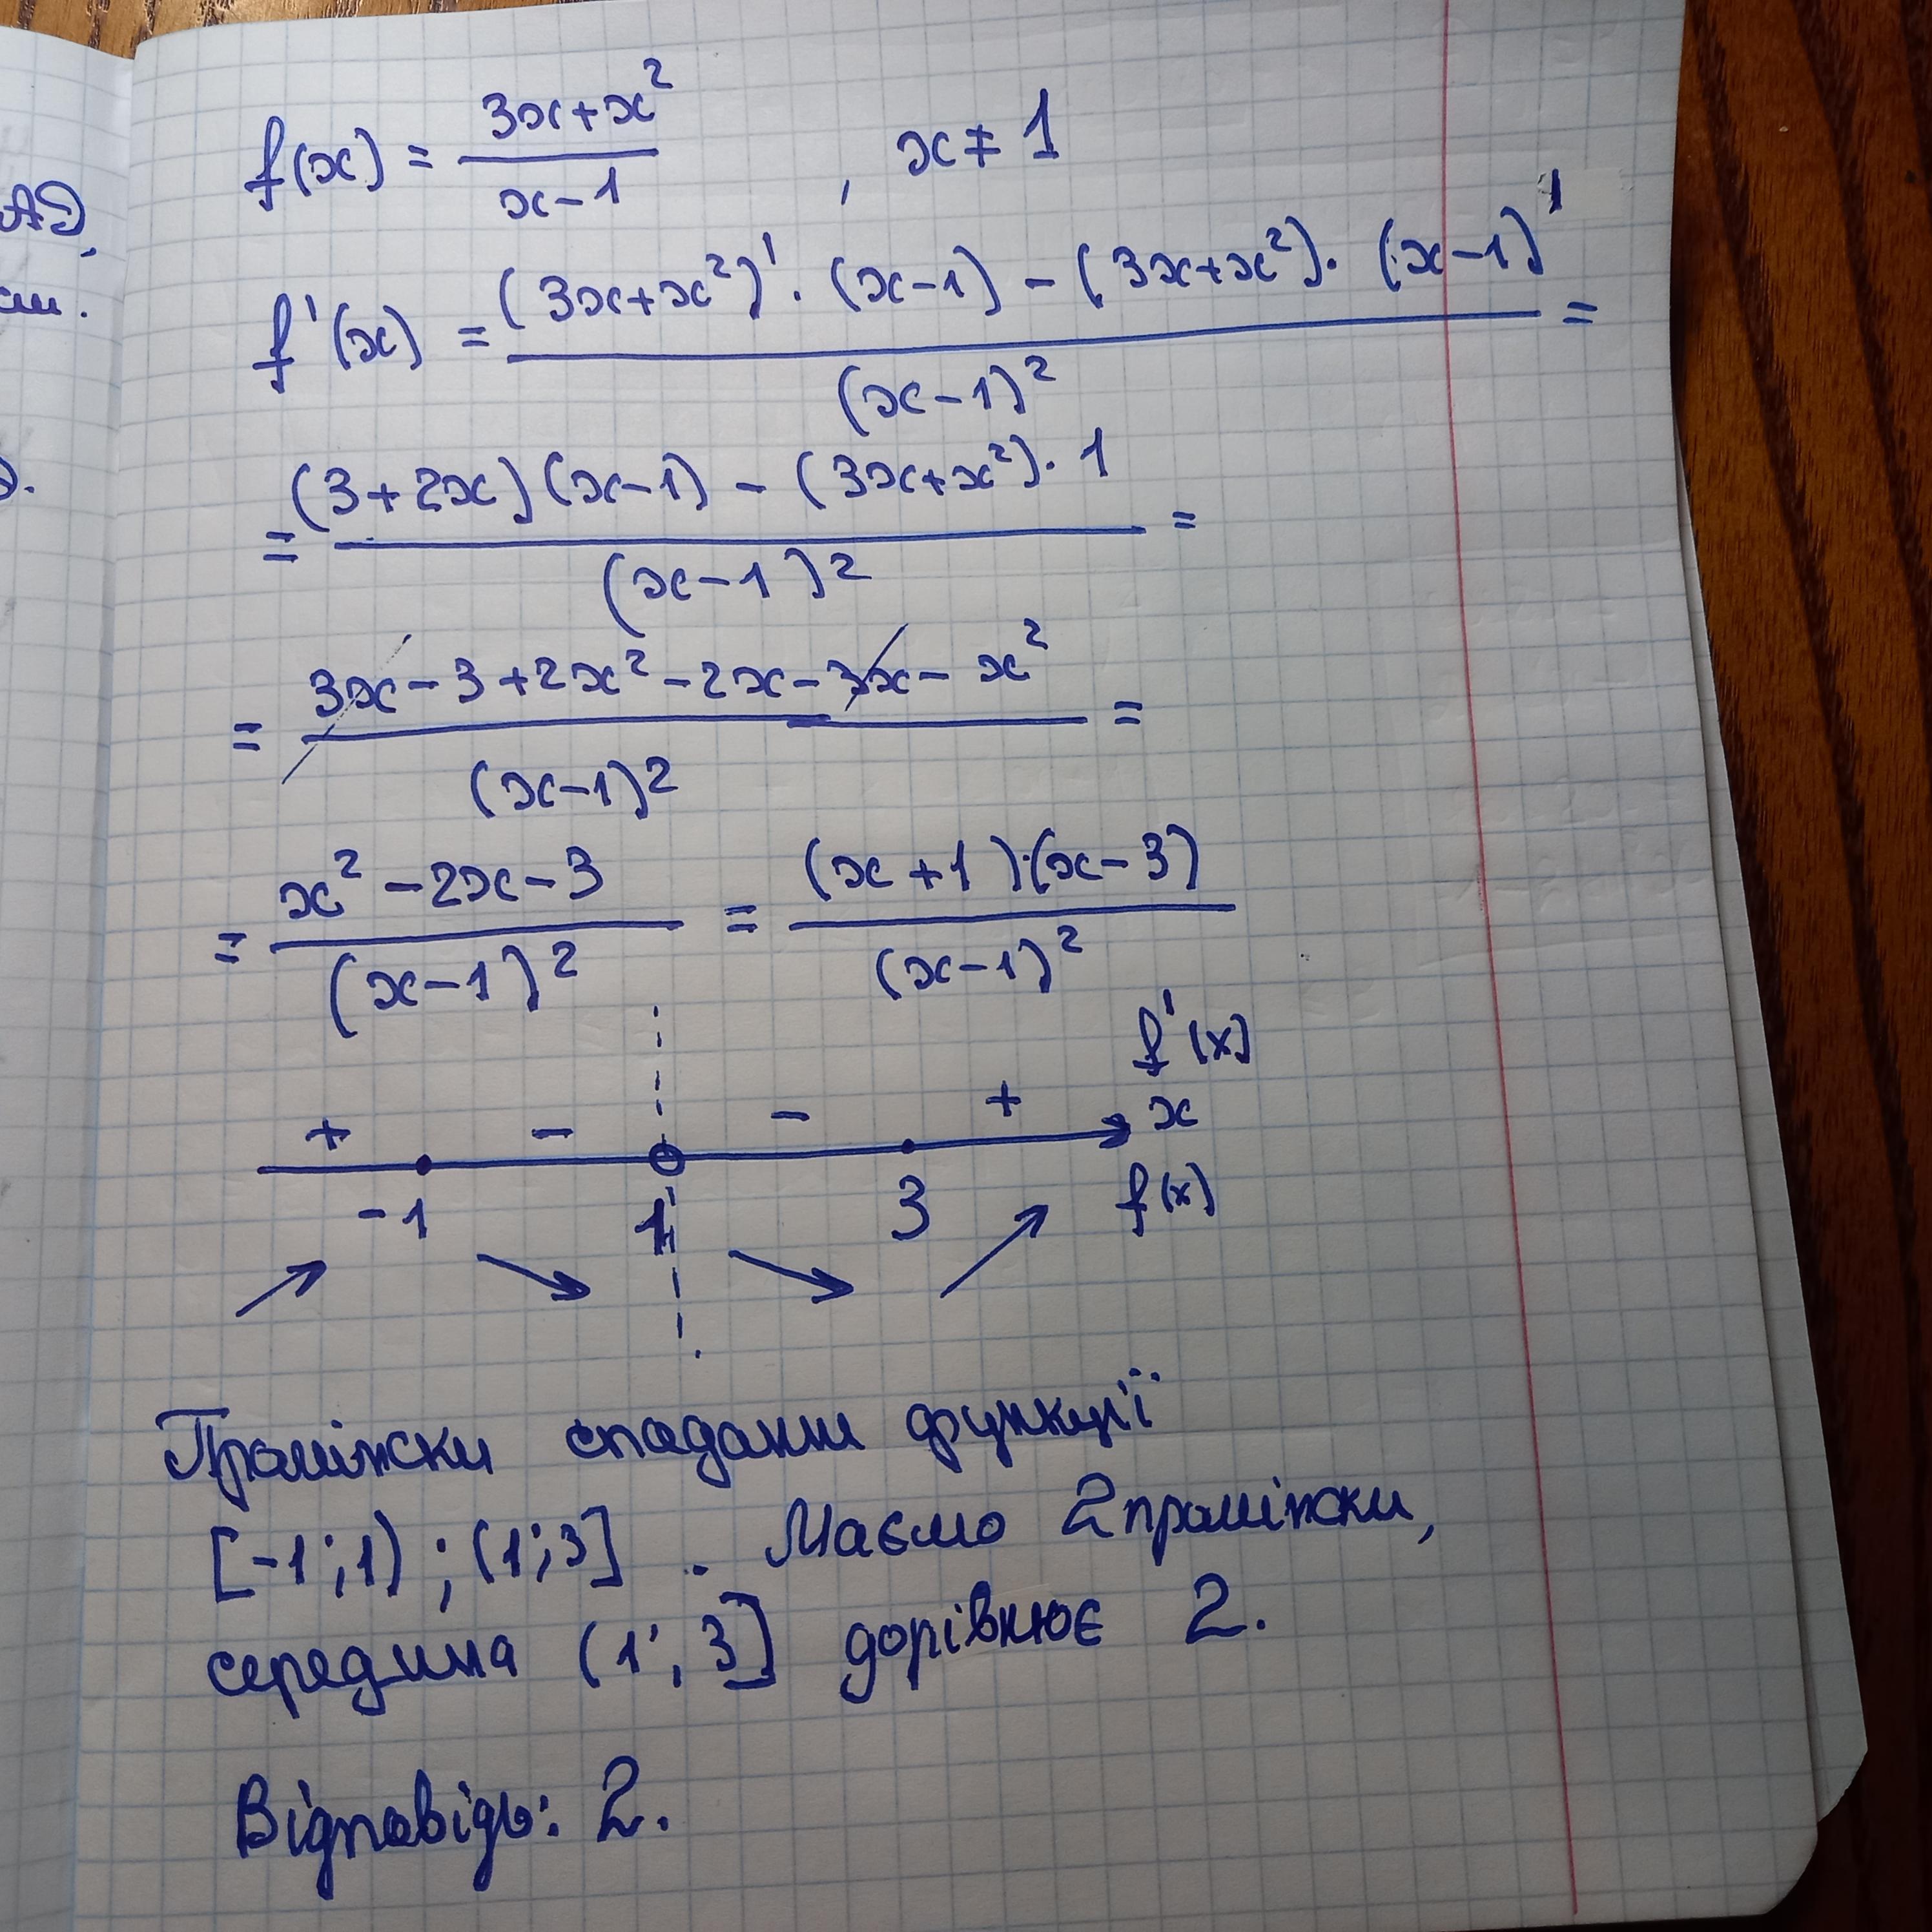 f(x) = (3x+x²)/(x-1) , x ≠ 1
f'(x) = ((3x+x²)' · (x-1) - (3x+x²) · (x-1)')/(x-1)² =
= ((3+2x)(x-1) - (3x+x²) · 1)/(x-1)² =
= (3x-3+2x²-2x-3x-x²)/(x-1)² =
= (x²-2x-3)/(x-1)² = ((x+1)·(x-3))/(x-1)²
f'(x)
+ - - + x
-1 1 3 f(x)
Проміжки спадання функції
[-1;1) ; (1;3] . Маємо 2 проміжки,
середина (1; 3] дорівнює 2.
Відповідь: 2.
АД,
см.